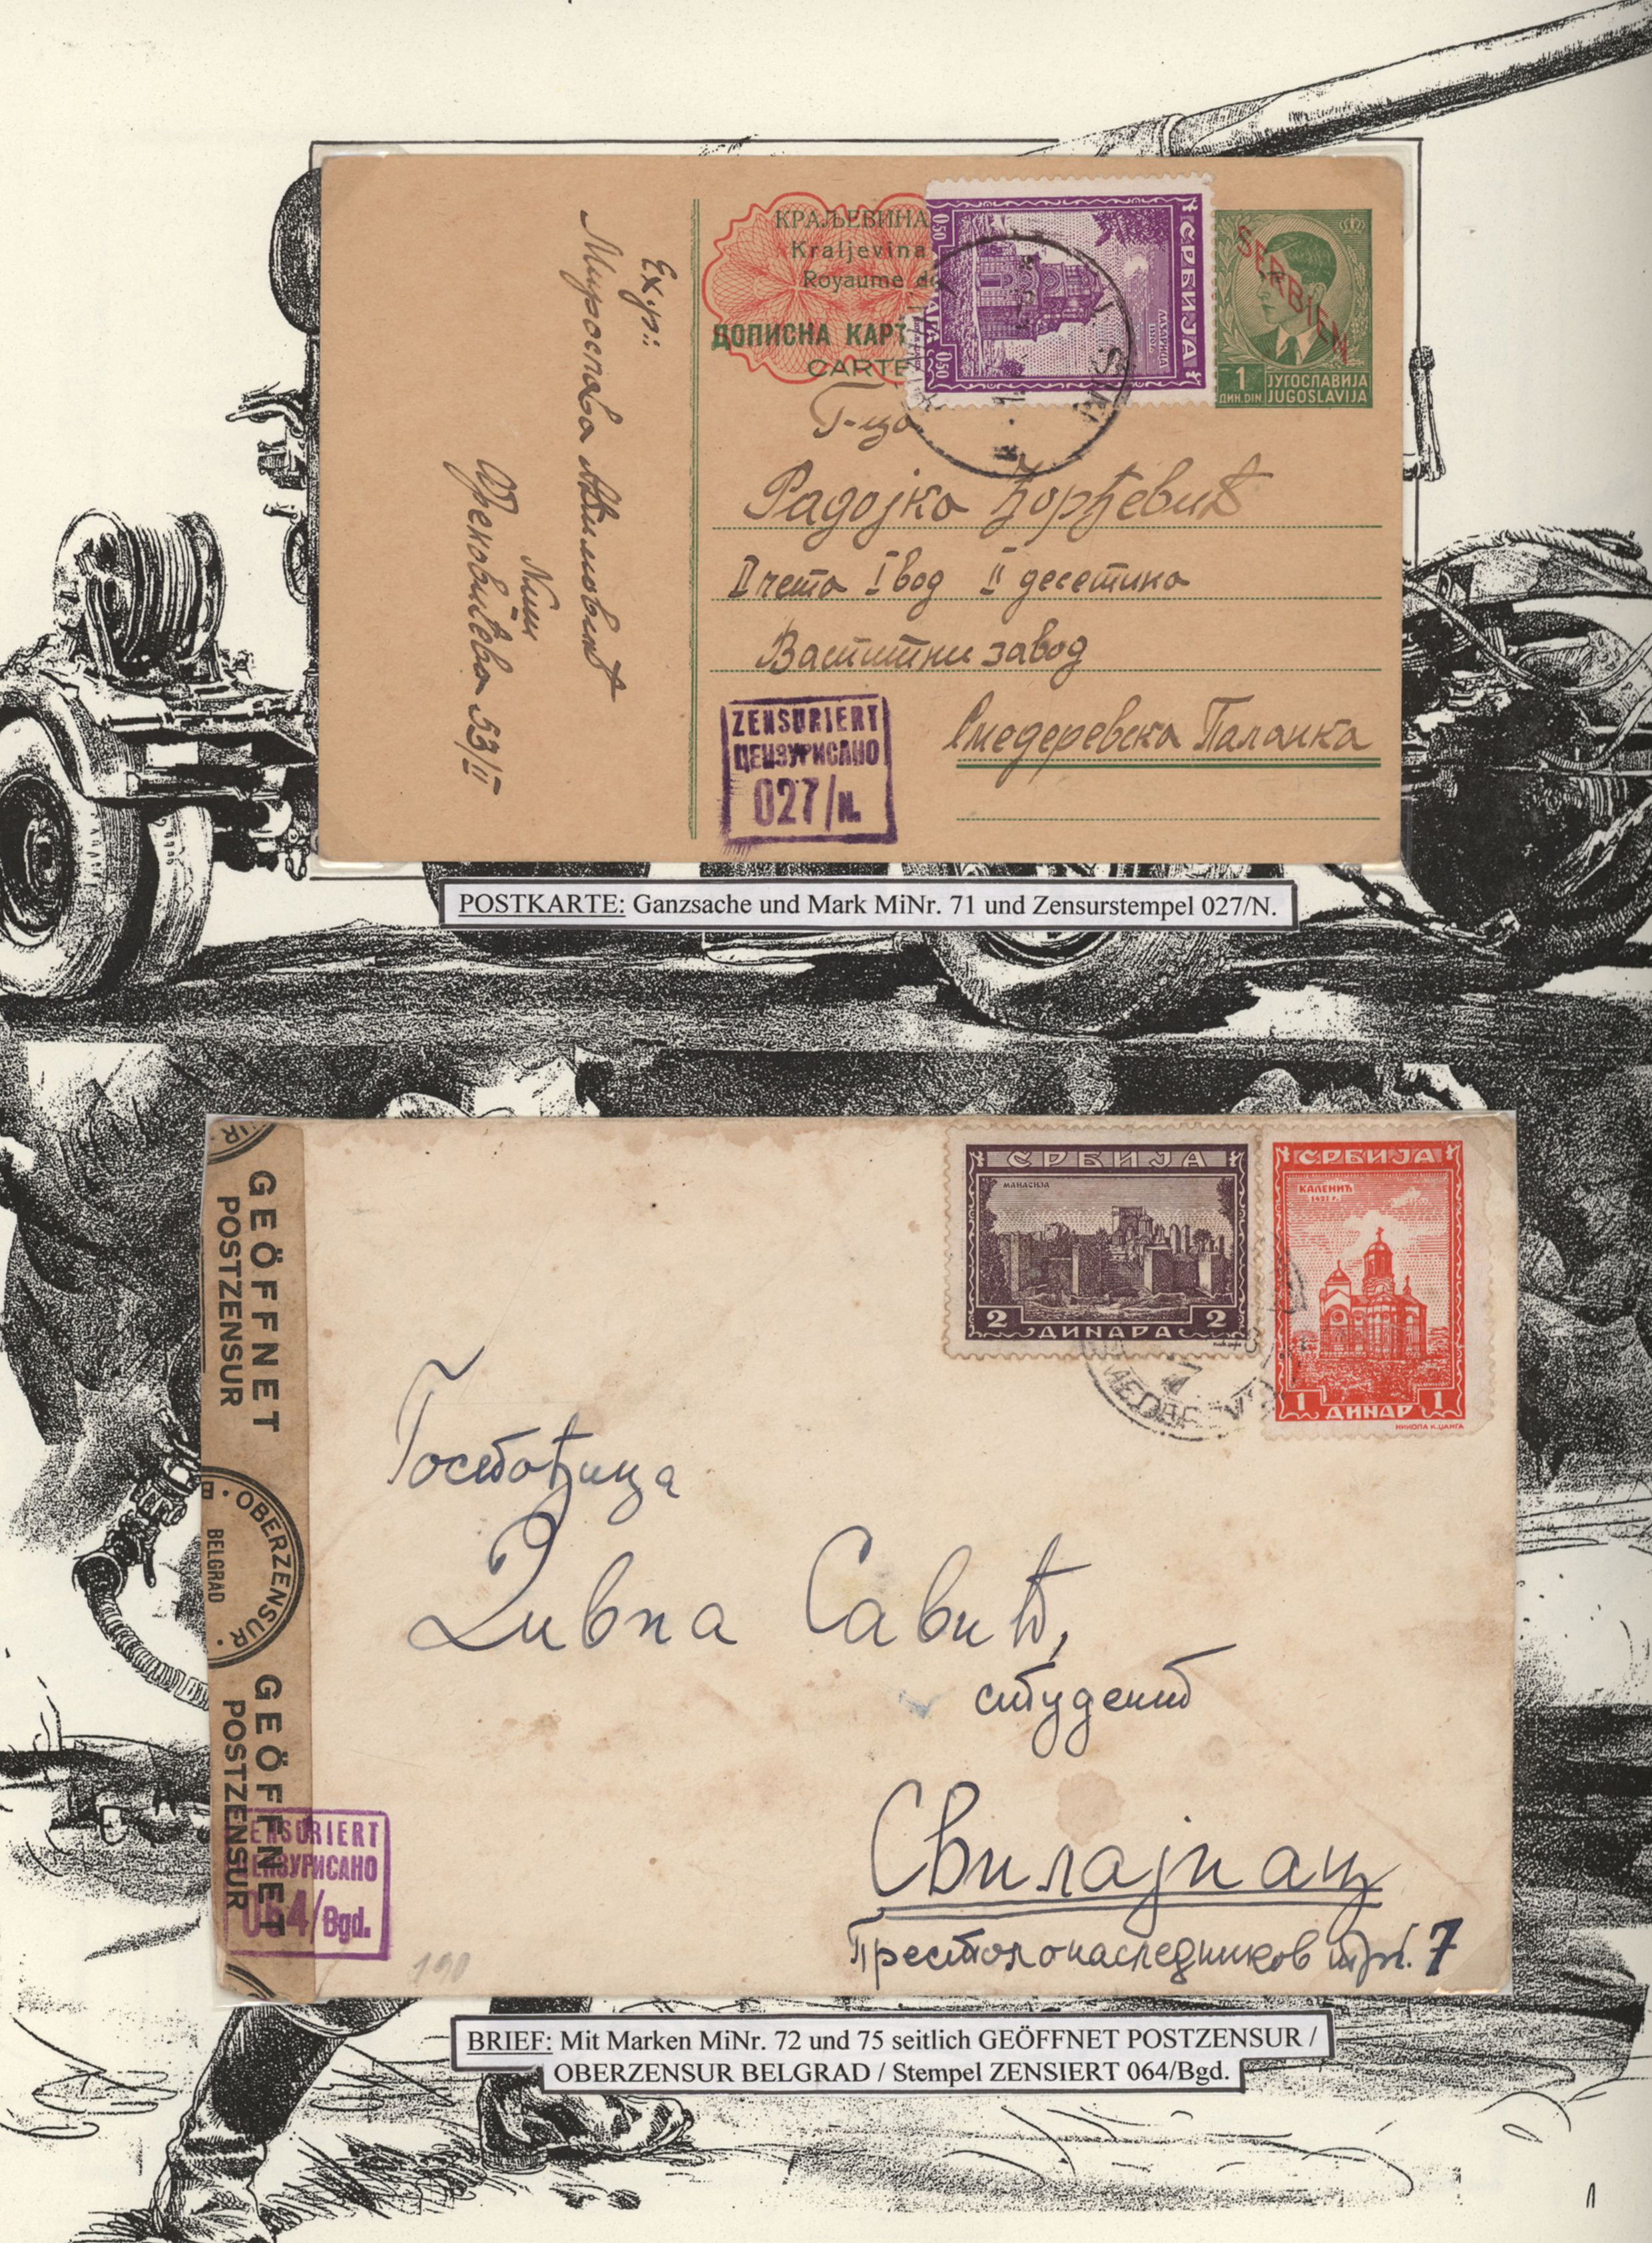 КРАЉЕВИНА
Kraljevina
Royaume de
ДОПИСНА КАРТ
CARTE
СРБИЈА
ЛАЗАРИЦА
0.50
0.50
SERBIEN
1
ДИН. DIN
ЈУГОСЛАВИЈА
JUGOSLAVIJA
Г-ца
Радојка Ђорђевић
II чета I вод II десетина
Васпитни завод
Смедеревска Паланка
Мирослава
Ниш
53/II
ZENSURIERT
ЦЕНЗУРИСАНО
027/N.
POSTKARTE: Ganzsache und Mark MiNr. 71 und Zensurstempel 027/N.
СРБИЈА
МАНАСИЈА
2 ДИНАРА 2
СРБИЈА
КАЛЕНИЋ
1 ДИНАР 1
НИКОЛА К. ЏАНГА
GEÖFFNET
POSTZENSUR
OBERZENSUR
BELGRAD
GEÖFFNET
POSTZENSUR
ENSURIERT
ЕНЗУРИСАНО
064/Bgd.
Госпођица
Дивна Савић,
студент
Свилајнац
Престолонаследников трг. 7
190
BRIEF: Mit Marken MiNr. 72 und 75 seitlich GEÖFFNET POSTZENSUR /
OBERZENSUR BELGRAD / Stempel ZENSIERT 064/Bgd.